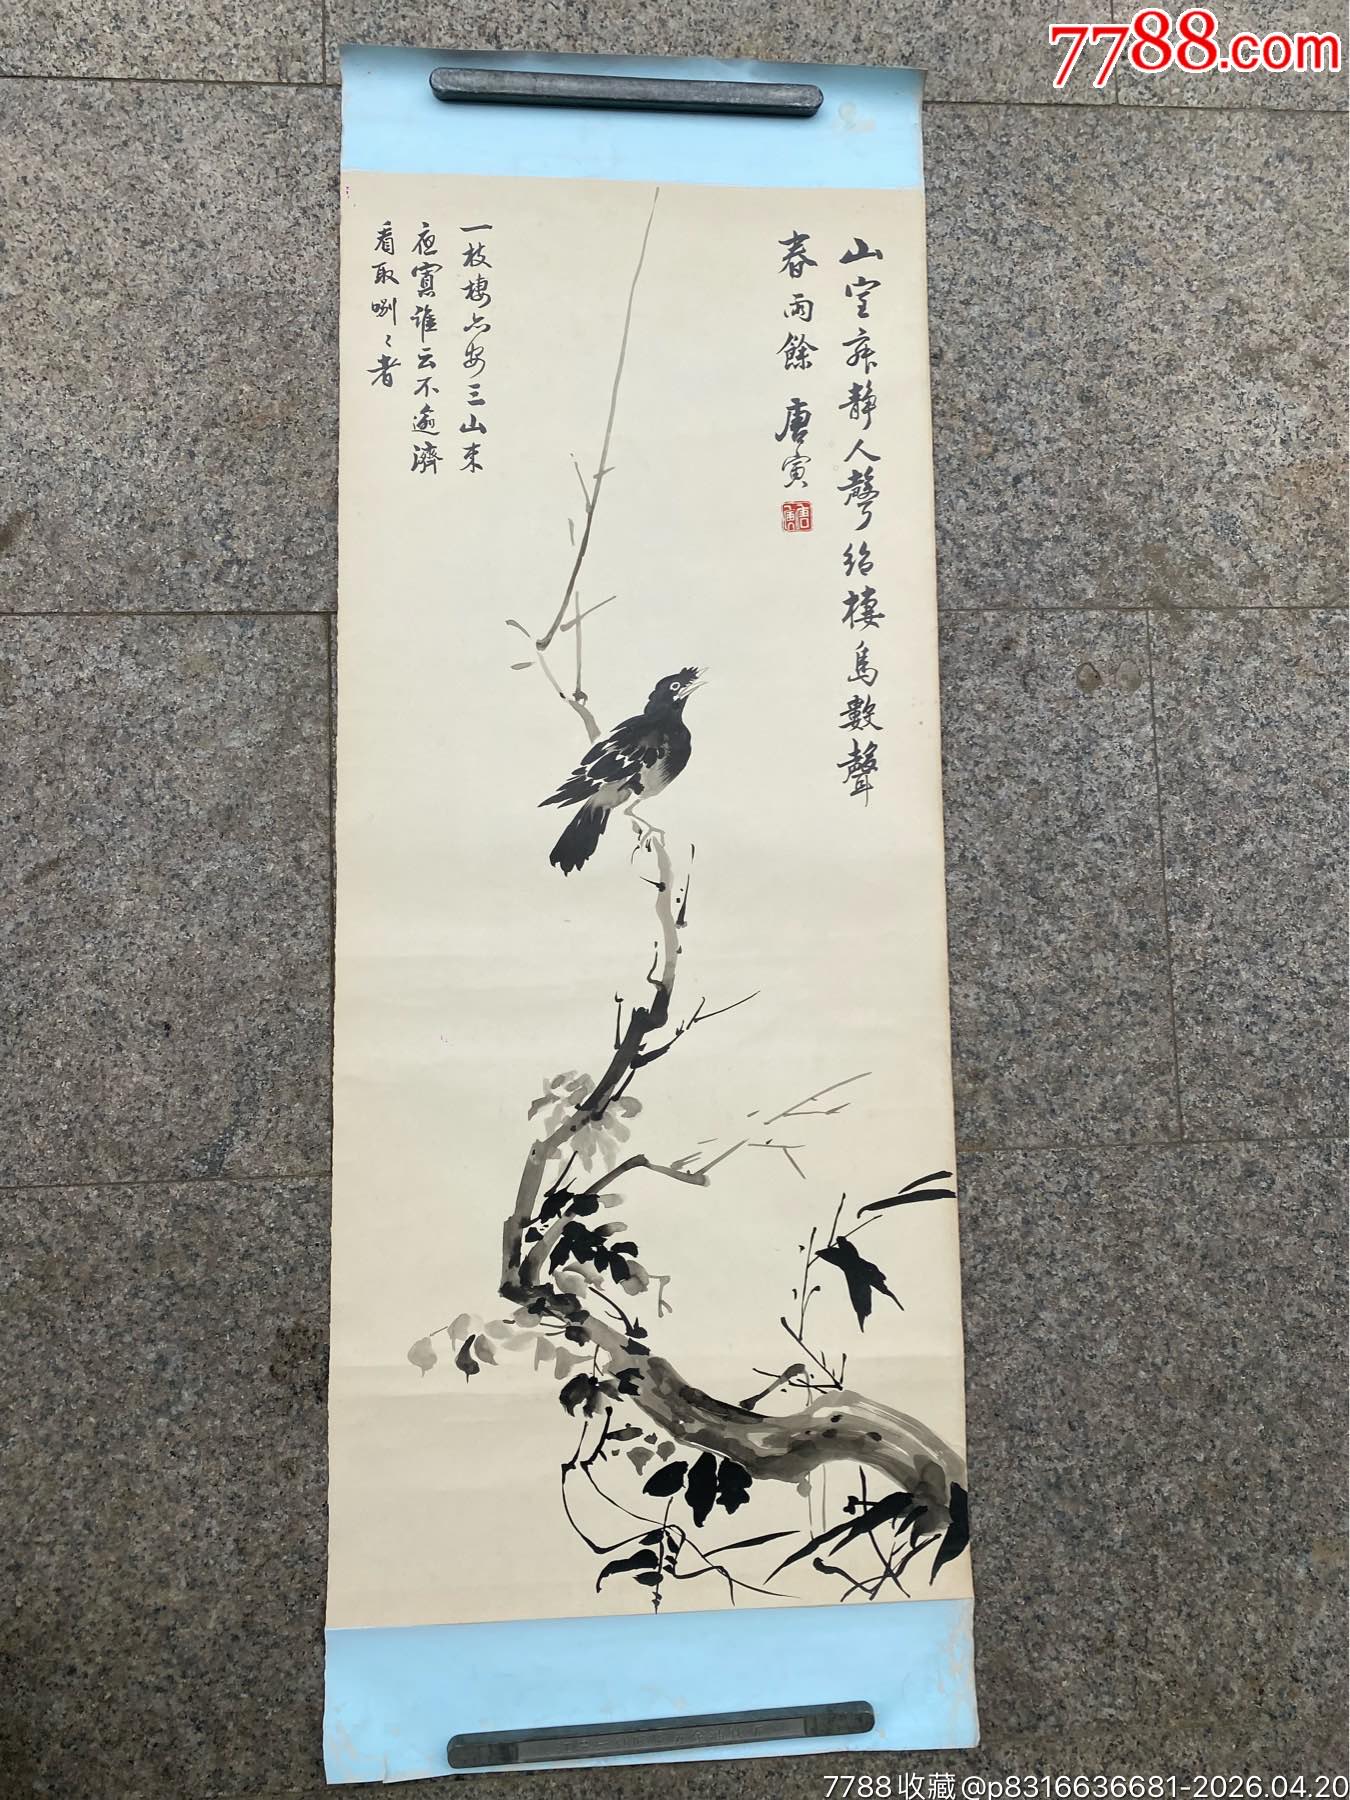 7788.com
山空寂静人聲絕棲鳥數聲
春雨餘 唐寅
唐寅
一枝棲亦安三山来
夜寞誰云不逾濟
看取唎々者
7788收藏@p8316636681-2026.04.20